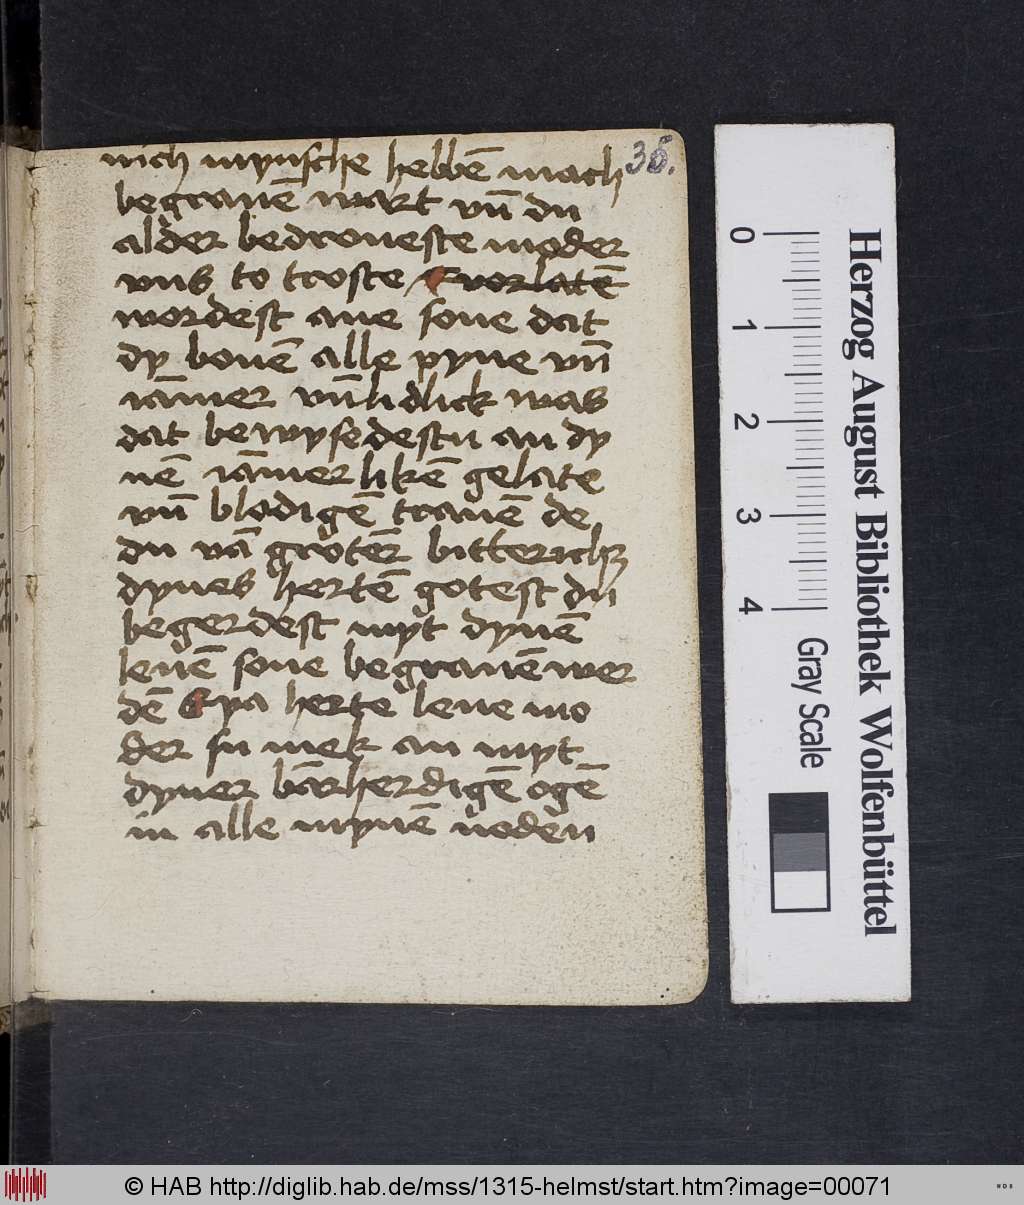 nich mynsche hebbē mach
35.
begrauē wart vn̄ du
alder bedroueste moder
vns to troste vorlatē
wordest ane sone dat
dy bouē alle pyne vn̄
iāmer vn̄lidlick was
dat bewysedestu an dy
nē iāmerlikē gelate
vn̄ blodigē tranē de
du vā grotēr bitterich
dynes hertē gotest du
begerdest myt dynē
leuē sone begrauē wer
dē Eya herte leue mo
der su mek an myt
dyner bārherdigē ogē
in alle mynē noden
0
1
2
3
4
Gray Scale
Herzog August Bibliothek Wolfenbüttel
© HAB http://diglib.hab.de/mss/1315-helmst/start.htm?image=00071